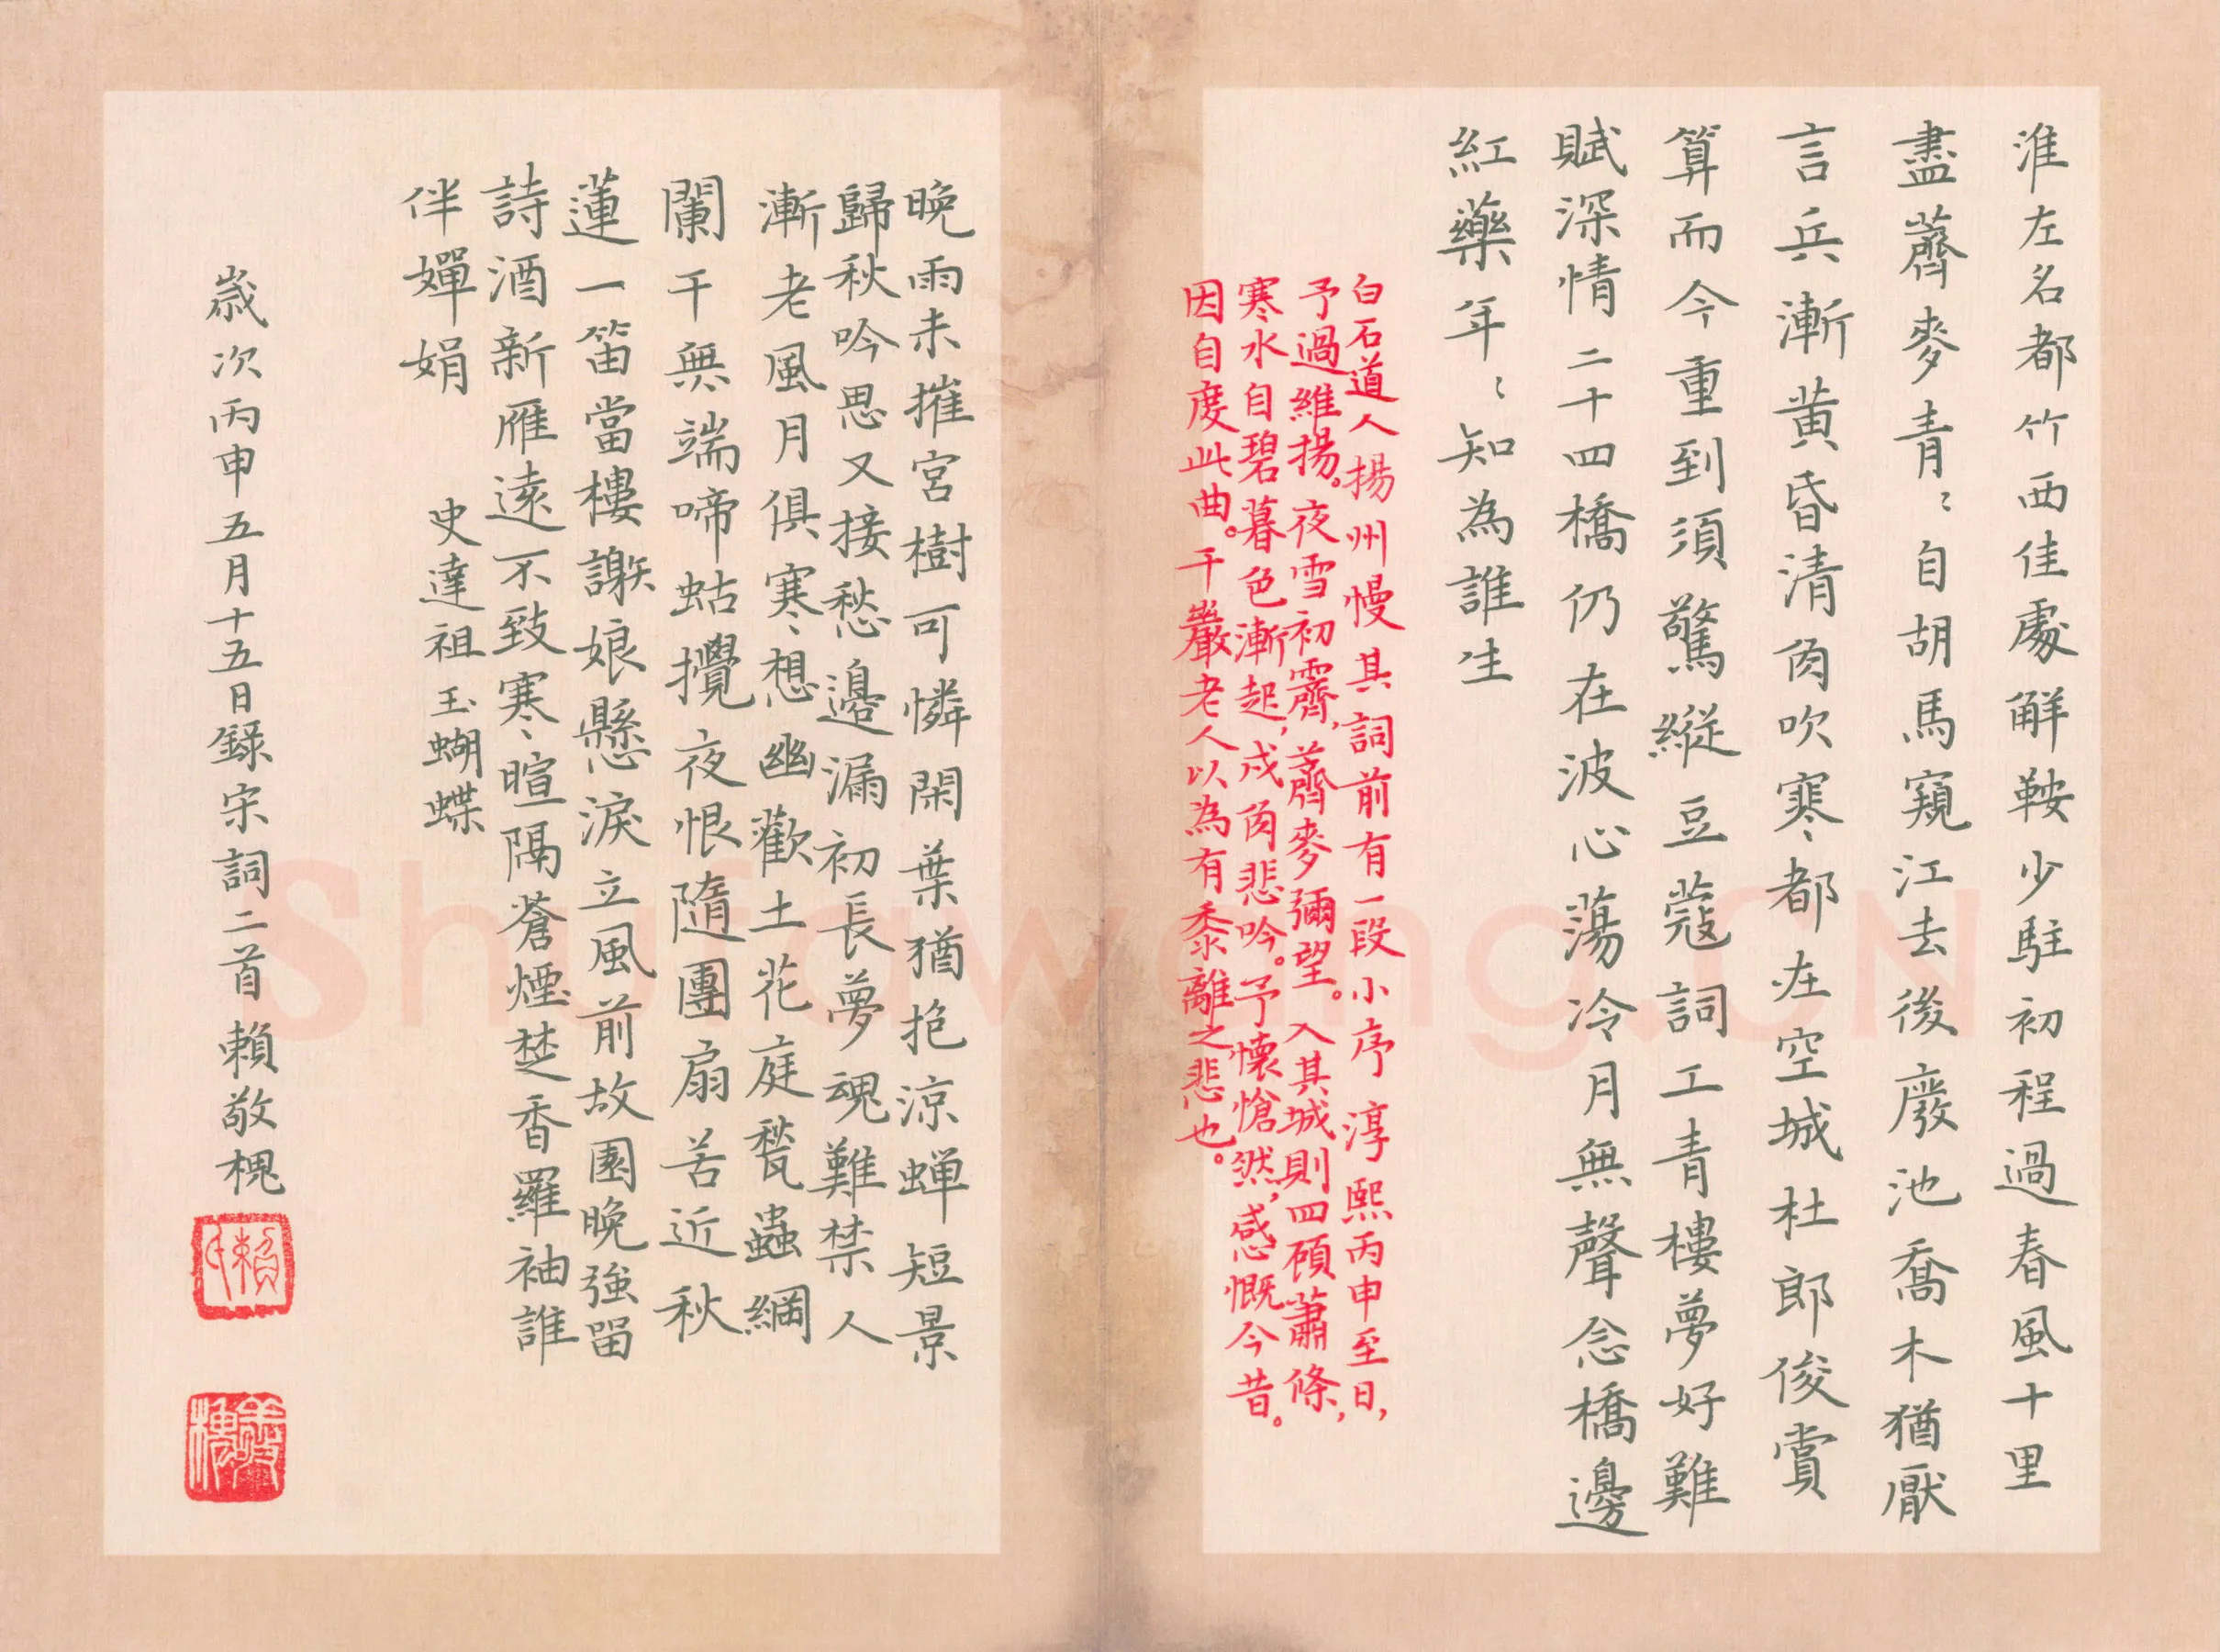 淮左名都竹西佳處解鞍少駐初程過春風十里
盡薺麥青〻自胡馬窺江去後廢池喬木猶厭
言兵漸黄昏清角吹寒都在空城杜郎俊賞
算而今重到須驚縱豆蔻詞工青樓夢好難
賦深情二十四橋仍在波心蕩冷月無聲念橋邊
紅藥年〻知為誰生
白石道人揚州慢其詞前有一段小序 淳熙丙申至日，
予過維揚。夜雪初霽，薺麥彌望。入其城則四顧蕭條，
寒水自碧暮色漸起，戍角悲吟。予懷愴然，感慨今昔。
因自度此曲。千巖老人以為有黍離之悲也。
晚雨未摧宮樹可憐閑葉猶抱涼蟬短景
歸秋吟思又接愁邊漏初長夢魂難禁人
漸老風月俱寒想幽歡土花庭甃蟲網
闌干無端啼蛄攪夜恨隨團扇苦近秋
蓮一笛當樓謝娘懸淚立風前故園晚強留
詩酒新雁遠不致寒暄隔蒼煙楚香羅袖誰
伴嬋娟
史達祖 玉蝴蝶
歲次丙申五月十五日錄宋詞二首賴敬槐
賴氏
敬槐
Shufawang.CN